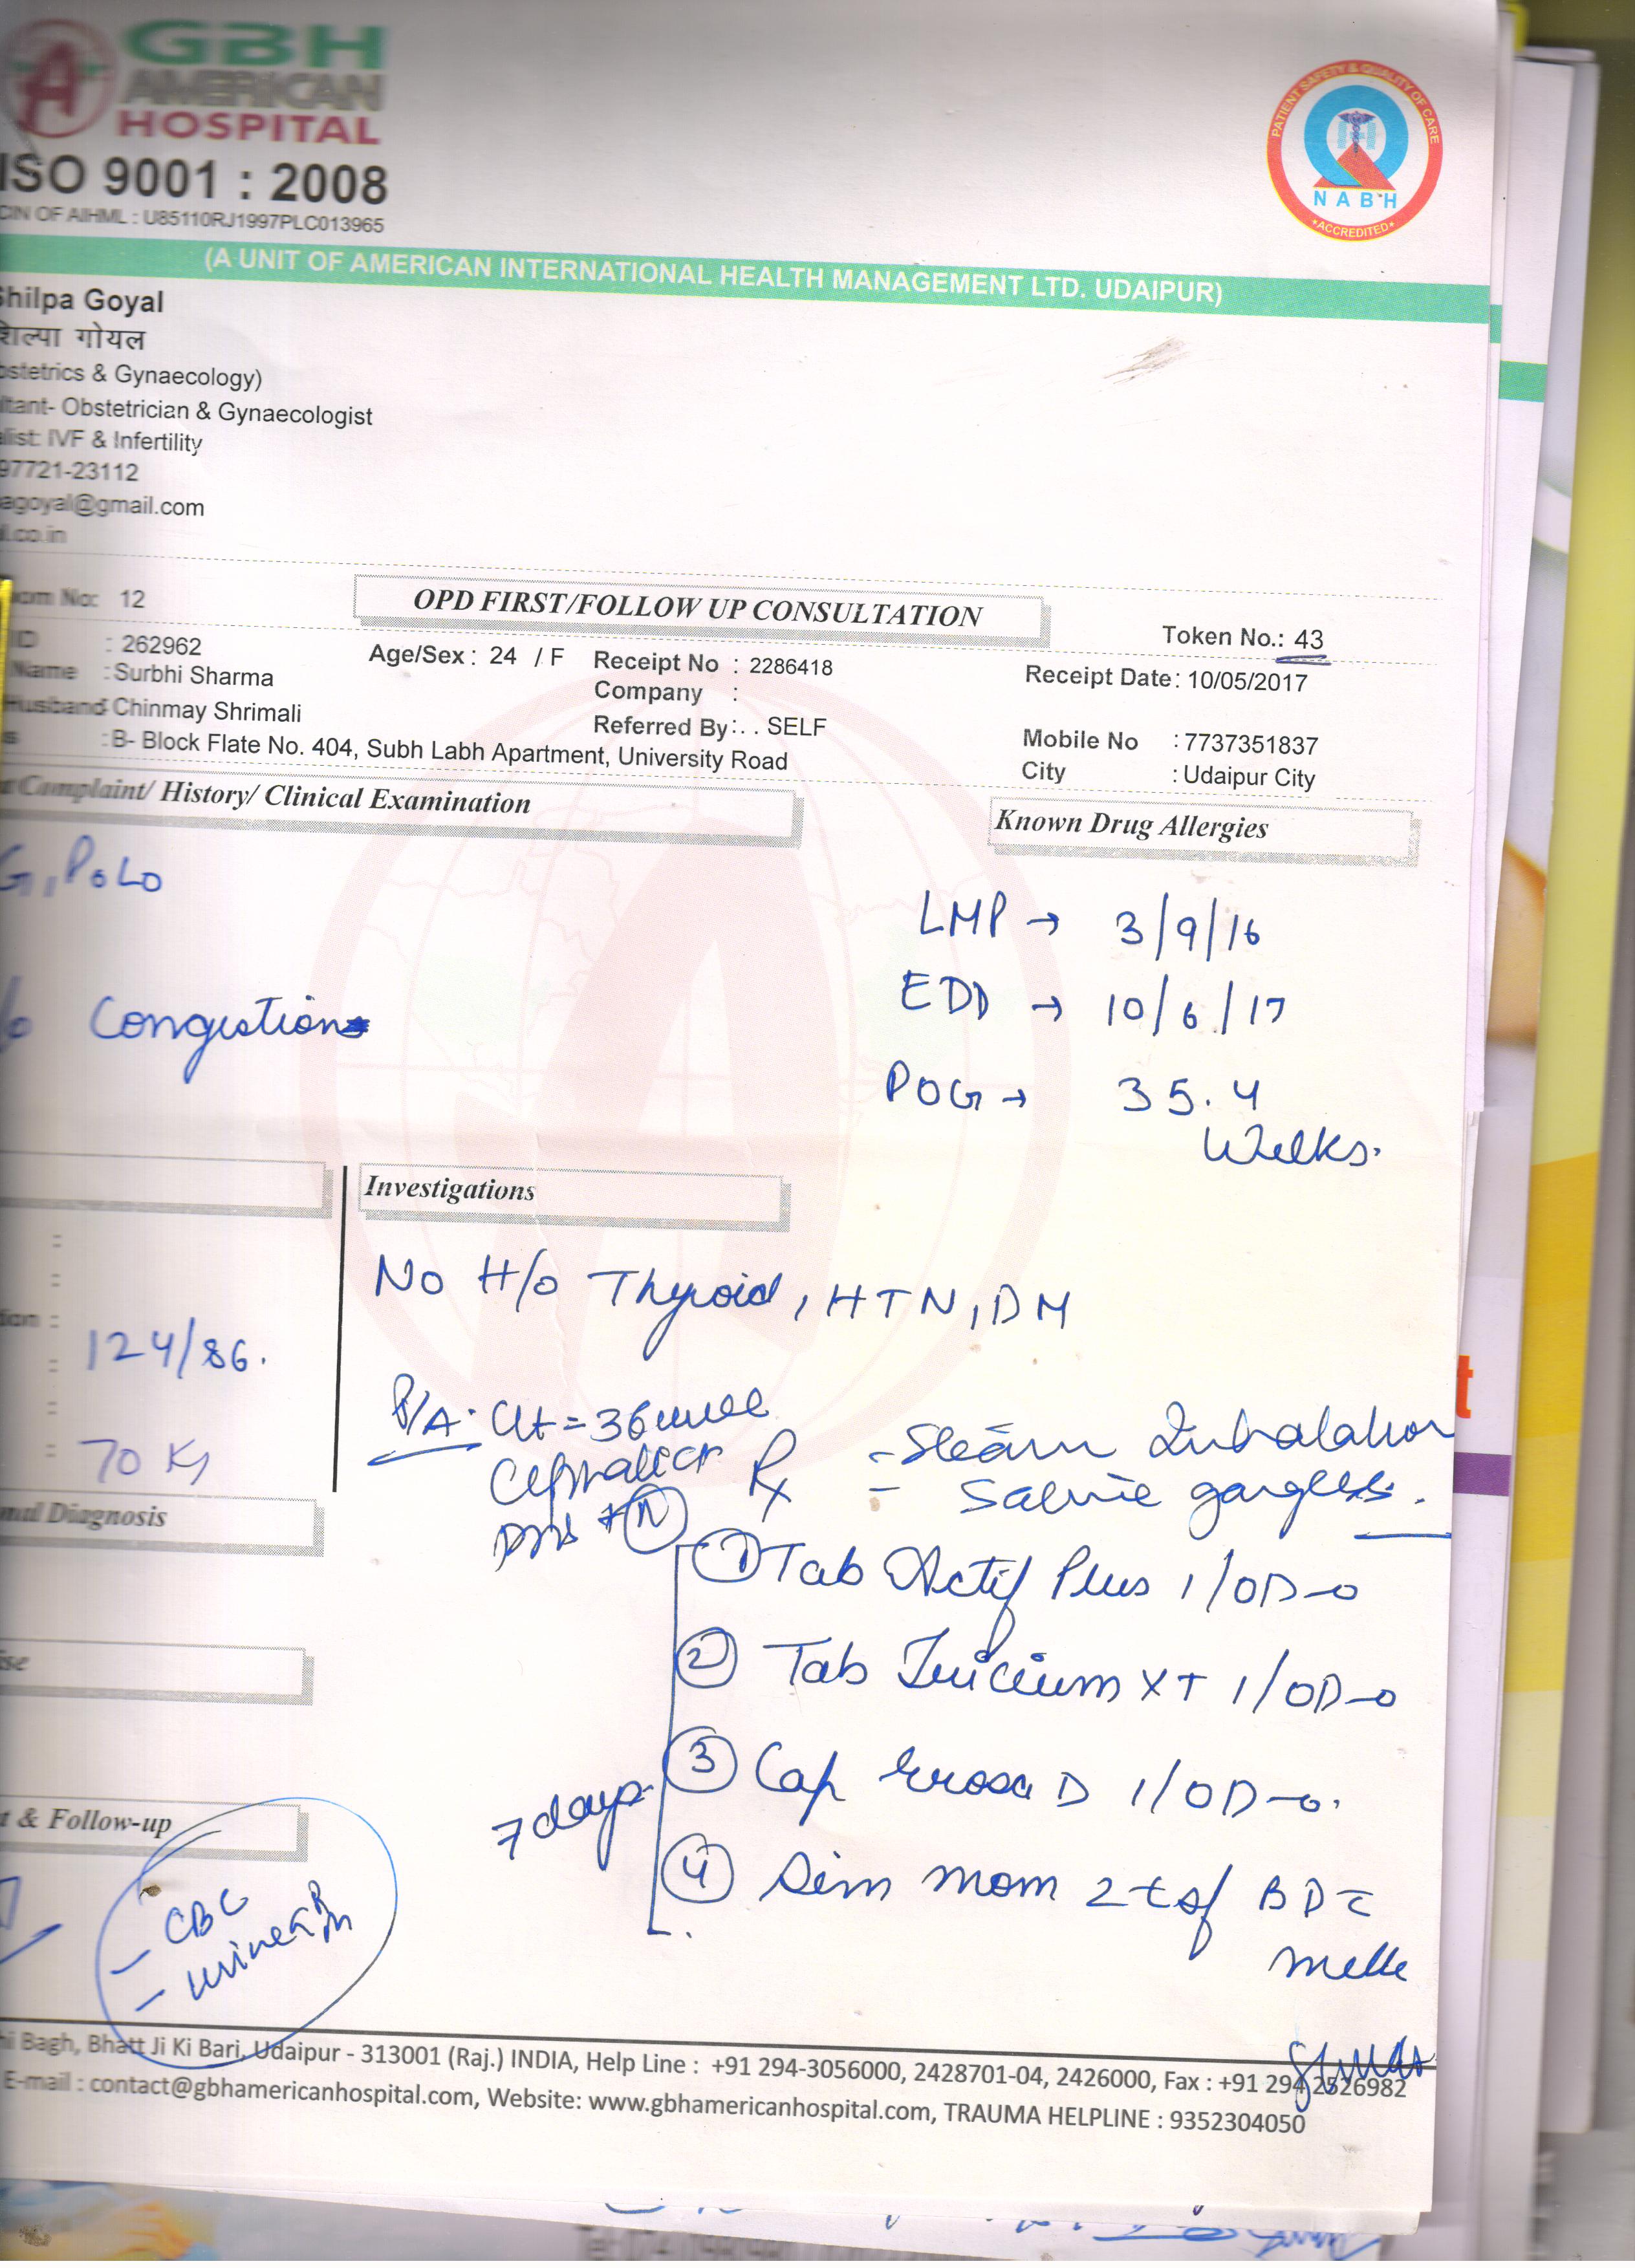 GBH
AMERICAN
HOSPITAL
ISO 9001 : 2008
CIN OF AIHML : U85110RJ1997PLC013965
PATIENT SAFETY & QUALITY OF CARE
NABH
ACCREDITED
(A UNIT OF AMERICAN INTERNATIONAL HEALTH MANAGEMENT LTD. UDAIPUR)
Shilpa Goyal
शिल्पा गोयल
bstetrics & Gynaecology)
ltant- Obstetrician & Gynaecologist
alist: IVF & Infertility
97721-23112
agoyal@gmail.com
l.co.in
oom No: 12
OPD FIRST/FOLLOW UP CONSULTATION
Token No.: 43
ID : 262962
Age/Sex : 24 / F
Receipt No : 2286418
Receipt Date: 10/05/2017
Name : Surbhi Sharma
Company :
Husband: Chinmay Shrimali
Referred By:. . SELF
Mobile No : 7737351837
s : B- Block Flate No. 404, Subh Labh Apartment, University Road
City : Udaipur City
t Complaint/ History/ Clinical Examination
Known Drug Allergies
G1P0L0
LMP → 3/9/16
EDD → 10/6/17
/o Congestion
POG → 35.4
Weeks.
Investigations
No H/o Thyroid, HTN, DM
tion :
: 124/86.
: 70 Kg
P/A. Ut = 36 week
Cephalic
FHS + (N)
Rx - Steam Inhalation
- Saline gargles.
nal Diagnosis
① Tab Actif Plus 1/OD
② Tab XT 1/OD
ise
③ Cap D 1/OD
7 days
④ mom 2 tsf BD c̄
milk
t & Follow-up
- CBC
- urine R/M
i Bagh, Bhatt Ji Ki Bari, Udaipur - 313001 (Raj.) INDIA, Help Line : +91 294-3056000, 2428701-04, 2426000, Fax : +91 294 2526982
E-mail : contact@gbhamericanhospital.com, Website: www.gbhamericanhospital.com, TRAUMA HELPLINE : 9352304050